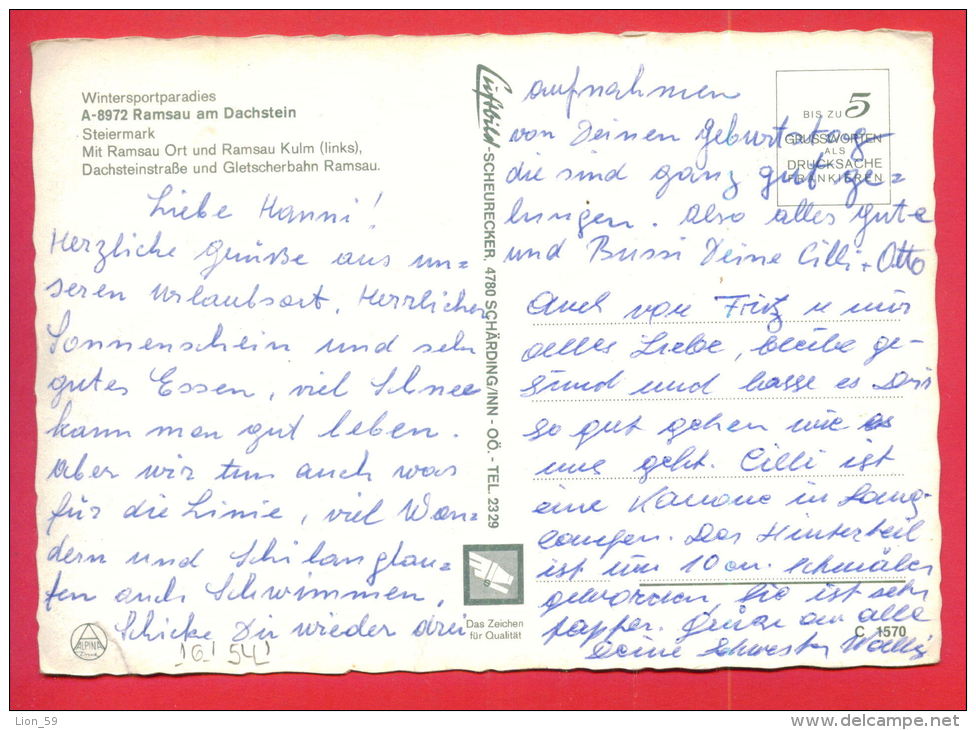 Wintersportparadies
A-8972 Ramsau am Dachstein
Steiermark
Mit Ramsau Ort und Ramsau Kulm (links),
Dachsteinstraße und Gletscherbahn Ramsau.
Liebe Hanni!
Herzliche Grüße aus un=
seren Urlaubsort. Herrlicher
Sonnenschein und sehr
gutes Essen, viel Schnee
kann man gut leben.
Aber wir tun auch was
für die Linie, viel Wan-
dern und Schilanglau=
fen auch Schwimmen,
Schicke Dir wieder drei
16' 54'
ALPINA
Druck
Luftbild-SCHEURECKER, 4780 SCHÄRDING/INN - OÖ. - TEL. 2329
Das Zeichen
für Qualität
BIS ZU 5
GRUSSWORTEN
ALS
DRUCKSACHE
FRANKIEREN
aufnahmen
von Deinen Geburtstag-
die sind ganz gut ge=
lungen. Also alles gute
und Bussi Deine Cilli + Otto
Auch von Fritz u mir
alles Liebe, bleibe ge-
sund und lasse es Dir
so gut gehen wie es
uns geht. Cilli ist
eine Kanone in Lang-
laufen. Das Hinterteil
ist um 10 cm. schmäler
geworden, sie ist sehr
tapfer. Grüße an alle
Deine Schwester Wally
C 1570
Lion_59
delcampe.net